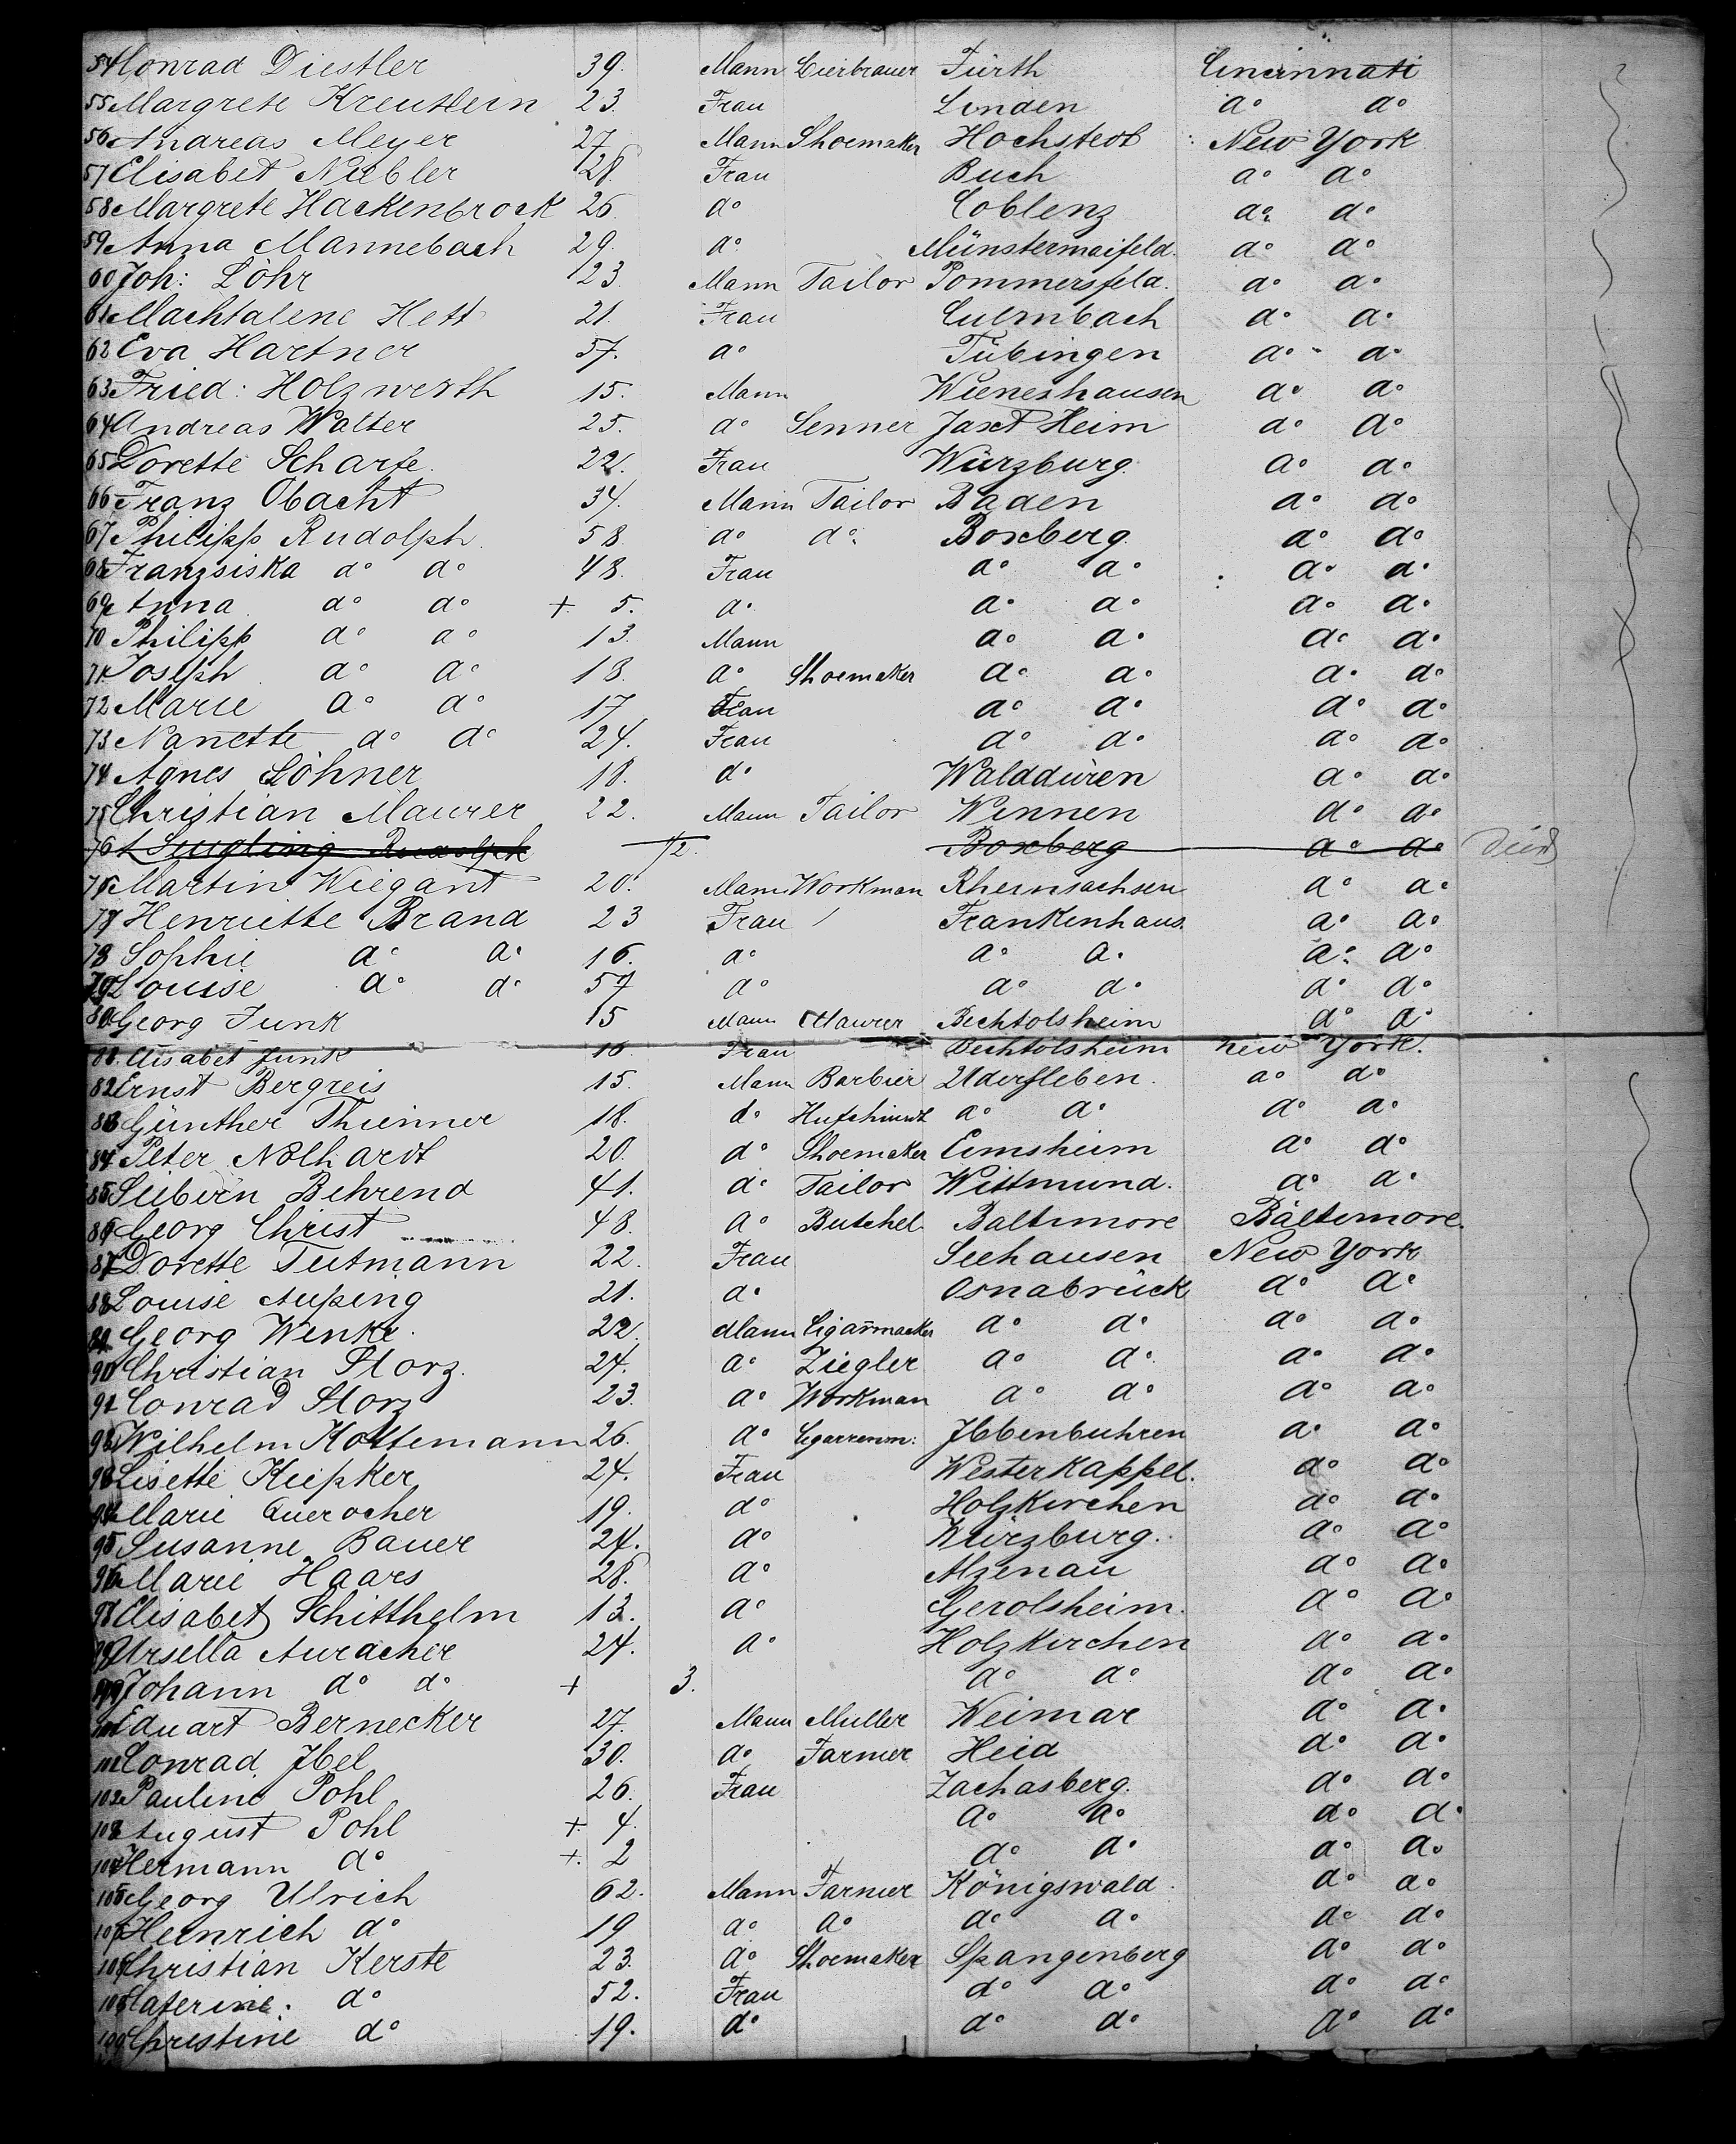 54 Conrad Distler 39. Mann Bierbrauer Fürth Cincinnati
55 Margrete Kreutlein 23. Frau Linden do do
56 Andreas Meyer 27 Mann Shoemaker Hochstedt New York
57 Elisabet Niebler 28. Frau Buch do do
58 Margrete Hackenbrock 26 do Coblenz do do
59 Anna Mannebach 29. do Münstermaifeld. do do
60 Joh: Löhr 23. Mann Tailor Pommersfeld. do do
61 Machtalene Hett 21. Frau Culmbach do do
62 Eva Hartner 57. do Tübingen do do
63 Fried: Holzwerth 15. Mann Wieneshausen do do
64 Andreas Walter 25. do Senner Jaxt Heim do do
65 Dorette Scharfe. 22. Frau Würzburg. do do
66 Franz Obacht 34. Mann Tailor Baden do do
67 Philipp Rudolph. 58. do do Boxberg. do do
68 Franzsiska do do 48. Frau do do do do
69 Anna do do + 5. do do do do do
70 Philipp do do 13. Mann do do do do
71 Joseph do do 18. do Shoemaker do do do do
72 Marie do do 17 Frau do do do do
73 Nanette do do 24. Frau do do do do
74 Agnes Löhner 18. do Walddüren do do
75 Christian Maurer 22. Mann Tailor Winnen do do
76 + Seugling Rudolph 1/2. Boxberg do do Died
76 Martin Wiegant 20. Mann Workman Rheinsachsen do do
77 Henriette Brand 23 Frau Frankenhaus. do do
78 Sophie do do 16. do do do do do
79 Louise do do 57 do do do do do
80 Georg Junk 15 Mann Maurer Bechtolsheim do do
81. Elisabet Junk 16 Frau Bechtolsheim New York.
82 Ernst Bergreis 15. Mann Barbier Udersleben. do do
83 Günther Thiemer 18. do do do do do
84 Peter Nolhardt 20. do Shoemaker Eimsheim do do
85 Behrend 41. do Tailor Wittmund. do do
86 Georg Christ 48. do Butchel Baltimore Baltimore.
87 Dorette Teutmann 22. Frau Seehausen New York
88 Louise Auping 21. do Osnabrück do do
89 Georg Wenke. 22. Mann Cigarrmacker do do do do
90 Christian Storz. 24. do Ziegler do do do do
91 Conrad Storz 23. do Workman do do do do
92 Wilhelm Kottemann 26. do Cigarrenm: Jbbenbuhren do do
93 Lisette Kiepker 24. Frau Westerkappel. do do
94 Marie Auerocher 19. do Holzkirchen do do
95 Susanne Bauer 24. do Würzburg. do do
96 Marie Haars 28. do Alzenau do do
97 Elisabet Schitthelm 13. do Gerolsheim. do do
98 Ursella Auracher 24. do Holzkirchen do do
99 Johann do do + 3. do do do do
100 Eduart Bernecker 27. Mann Muller Weimar do do
101 Conrad Jbel 30. do Farmer Heid do do
102 Pauline Pohl 26. Frau Zachasberg. do do
103 August Pohl + 4. do do do do
104 Hermann do + 2 do do do do
105 Georg Ulrich 62. Mann Farmer Königswald. do do
106 Heinrich do 19 do do do do do do
107 Christian Kerste 23. do Shoemaker Spangenberg do do
108 Caterine. do 52. Frau do do do do
109 Christine do 19. do do do do do